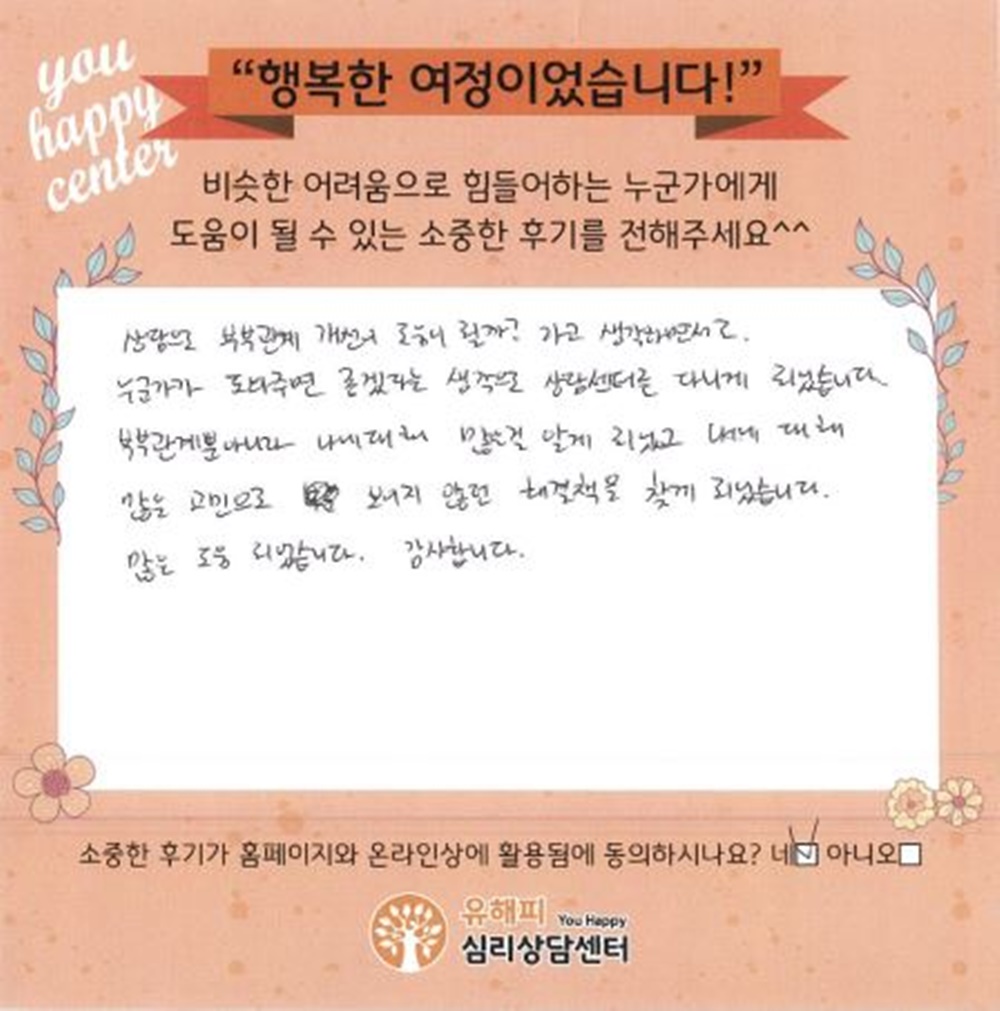 you
happy
center
“행복한 여정이었습니다!”
비슷한 어려움으로 힘들어하는 누군가에게
도움이 될 수 있는 소중한 후기를 전해주세요^^
상담으로 부부관계 개선이 도움이 될까? 라고 생각하면서도.
누군가가 도와주면 좋겠다는 생각으로 상담센터를 다니게 되었습니다.
부부관계뿐아니라 나에대해 많은걸 알게 되었고 내게 대해
많은 고민으로 보이지 않던 해결책을 찾게 되었습니다.
많은 도움 되었습니다. 감사합니다.
소중한 후기가 홈페이지와 온라인상에 활용됨에 동의하시나요? 네☑ 아니오☐
유해피 You Happy
심리상담센터